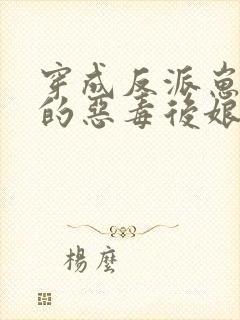 穿成反派崽崽
的惡毒後娘
楊麼